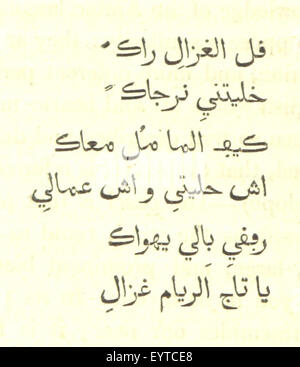 فل الغزال راك
خليتني نرجاك
كيف الما مل معاك
اش حليتي و اش عمالي
رففي بالي يهواك
يا تاج الريام غزال
alamy stock photo